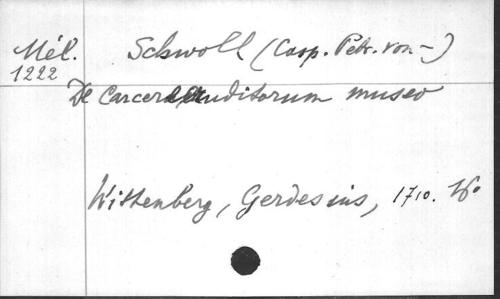 Mél. Schwoll (Casp. Petr. von -)
1222
De Carcere eruditorum museo
Wittenberg, Gerdesius, 1710. 4o